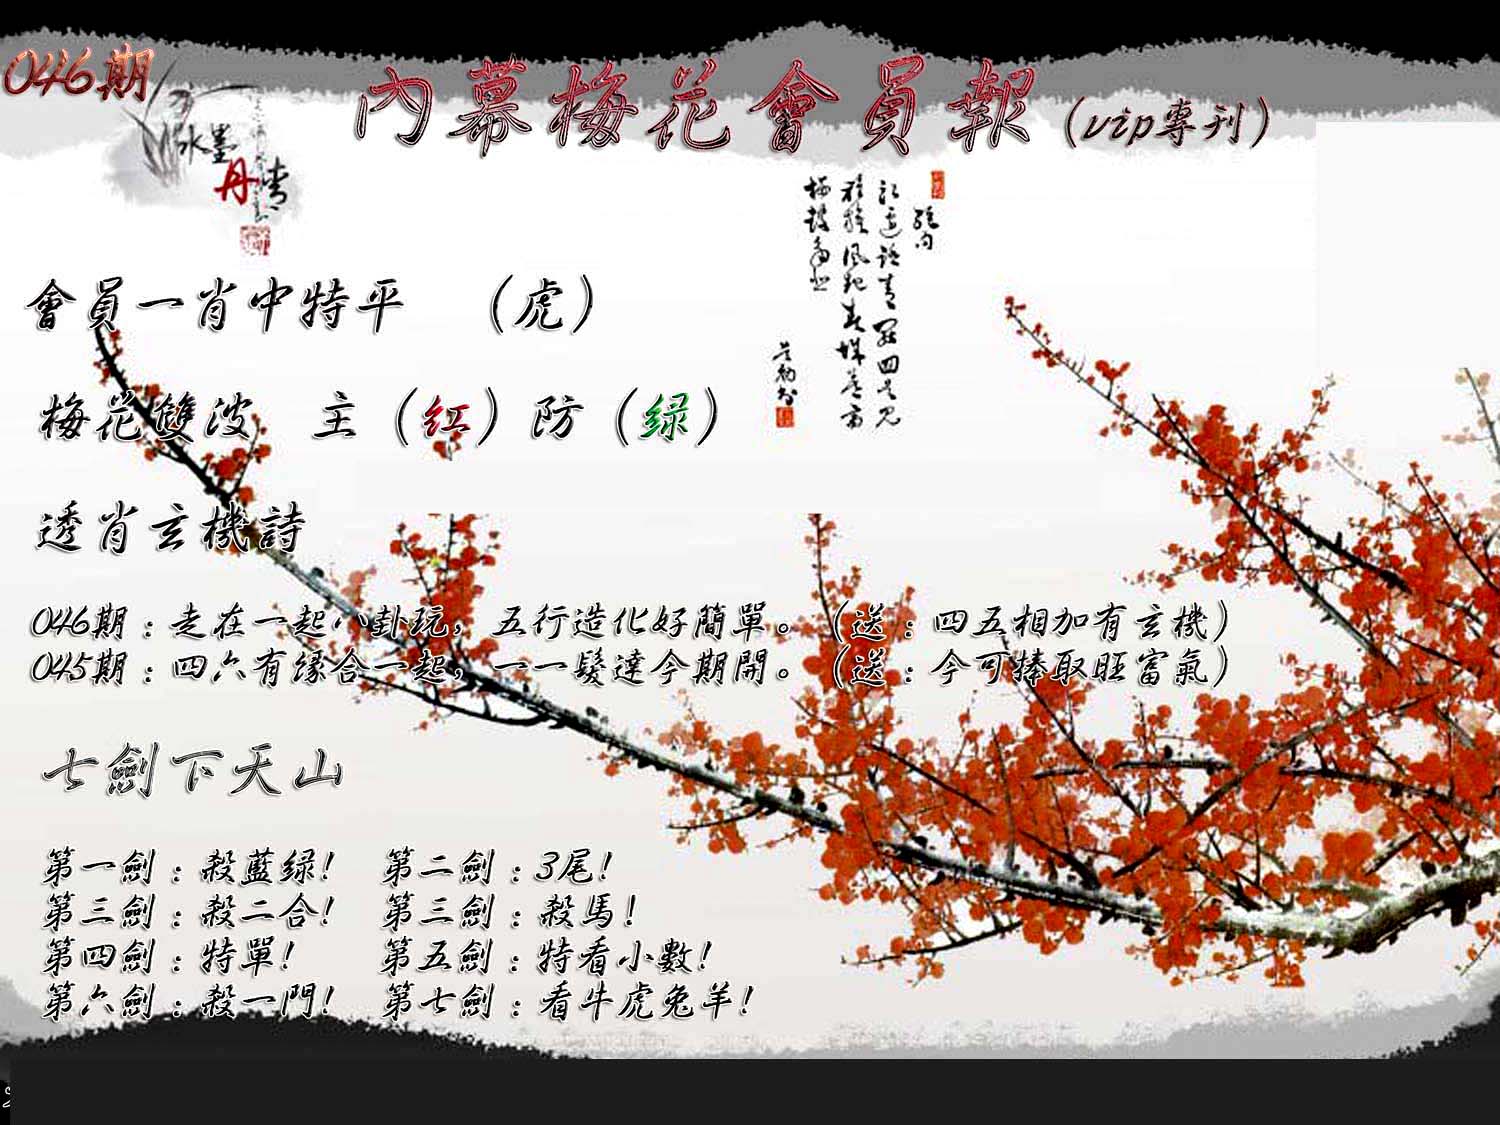 046期
內幕梅花會員報（vip專刊）
水墨
丹青
會員一肖中特平　（虎）
梅花雙波　主（红）防（绿）
透肖玄機詩
046期：走在一起八卦玩，五行造化好簡單。（送：四五相加有玄機）
045期：四六有缘合一起，一一髮達今期開。（送：今可捧取旺富氣）
七劍下天山
第一劍：殺藍绿！　第二劍：3尾！
第三劍：殺二合！　第三劍：殺馬！
第四劍：特單！　第五劍：特看小數！
第六劍：殺一門！　第七劍：看牛虎兔羊！